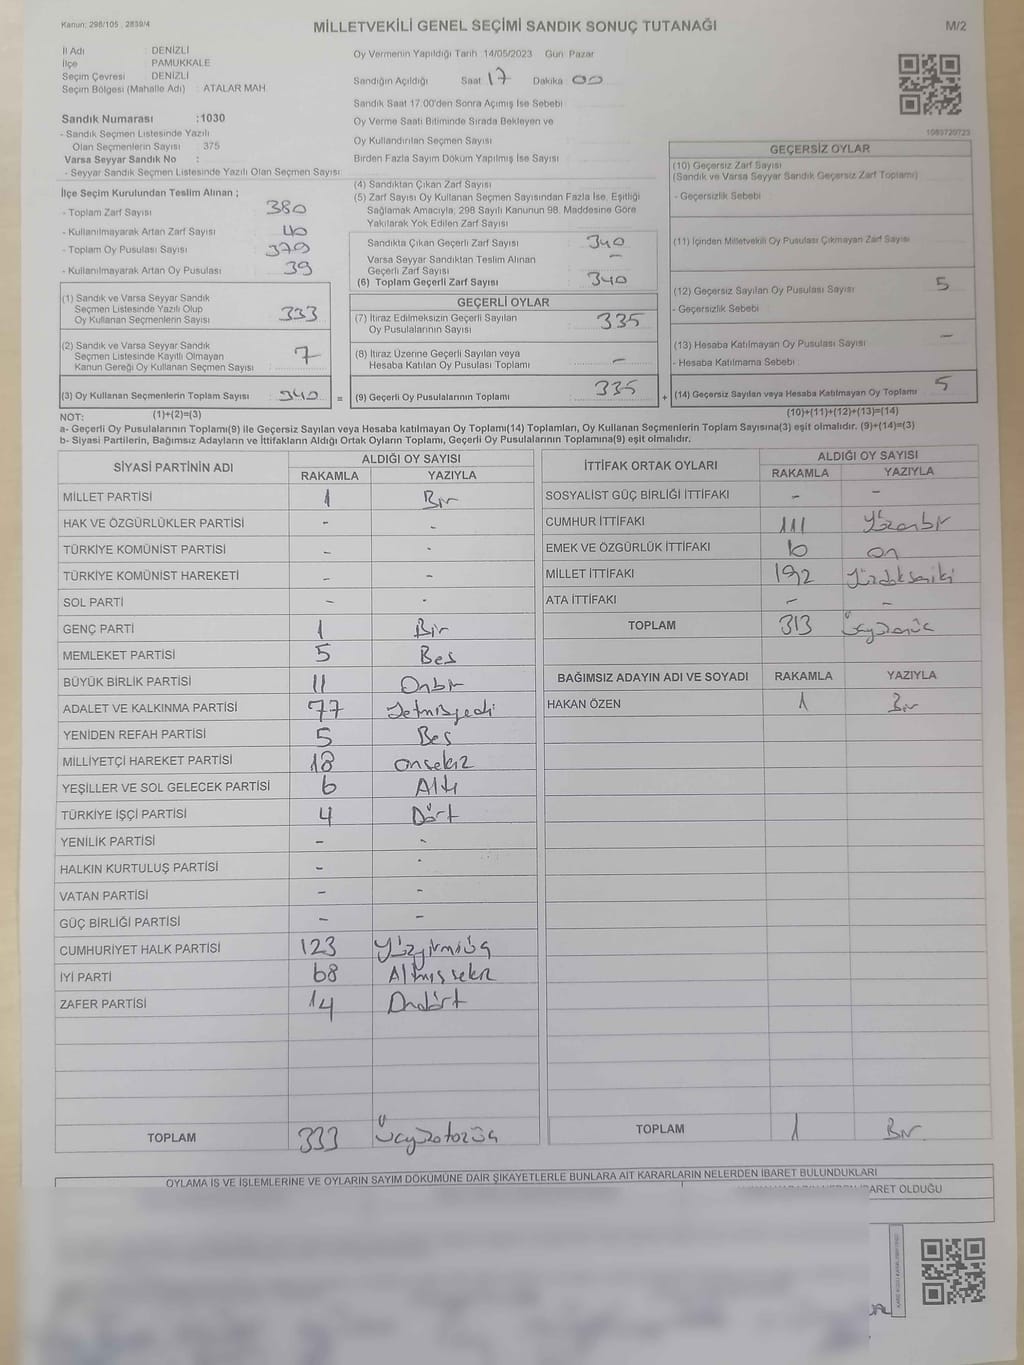 Kanun: 298/105 , 2839/4
MİLLETVEKİLİ GENEL SEÇİMİ SANDIK SONUÇ TUTANAĞI
M/2
İl Adı : DENİZLİ
İlçe PAMUKKALE
Seçim Çevresi : DENİZLİ
Seçim Bölgesi (Mahalle Adı) : ATALAR MAH.
Sandık Numarası :1030
- Sandık Seçmen Listesinde Yazılı
Olan Seçmenlerin Sayısı 375
Varsa Seyyar Sandık No :
- Seyyar Sandık Seçmen Listesinde Yazılı Olan Seçmen Sayısı:
Oy Vermenin Yapıldığı Tarih 14/05/2023 Gün Pazar
Sandığın Açıldığı Saat 17 Dakika 00
Sandık Saat 17.00'den Sonra Açımış İse Sebebi
Oy Verme Saati Bitiminde Sırada Bekleyen ve
Oy Kullandırılan Seçmen Sayısı
Birden Fazla Sayım Döküm Yapılmış İse Sayısı
1083720723
İlçe Seçim Kurulundan Teslim Alınan ;
- Toplam Zarf Sayısı 380
- Kullanılmayarak Artan Zarf Sayısı 40
- Toplam Oy Pusulası Sayısı 379
- Kullanılmayarak Artan Oy Pusulası 39
(1) Sandık ve Varsa Seyyar Sandık
Seçmen Listesinde Yazılı Olup
Oy Kullanan Seçmenlerin Sayısı 333
(2) Sandık ve Varsa Seyyar Sandık
Seçmen Listesinde Kayıtlı Olmayan
Kanun Gereği Oy Kullanan Seçmen Sayısı 7
(3) Oy Kullanan Seçmenlerin Toplam Sayısı 340 =
(4) Sandıktan Çıkan Zarf Sayısı
(5) Zarf Sayısı Oy Kullanan Seçmen Sayısından Fazla İse, Eşitliği
Sağlamak Amacıyla, 298 Sayılı Kanunun 98. Maddesine Göre
Yakılarak Yok Edilen Zarf Sayısı
Sandıkta Çıkan Geçerli Zarf Sayısı : 340
Varsa Seyyar Sandıktan Teslim Alınan
Geçerli Zarf Sayısı : -
(6) Toplam Geçerli Zarf Sayısı : 340
GEÇERLİ OYLAR
(7) İtiraz Edilmeksizin Geçerli Sayılan
Oy Pusulalarının Sayısı : 335
(8) İtiraz Üzerine Geçerli Sayılan veya
Hesaba Katılan Oy Pusulası Toplamı : -
(9) Geçerli Oy Pusulalarının Toplamı : 335 +
GEÇERSİZ OYLAR
(10) Geçersiz Zarf Sayısı
(Sandık ve Varsa Seyyar Sandık Geçersiz Zarf Toplamı)
- Geçersizlik Sebebi
(11) İçinden Milletvekili Oy Pusulası Çıkmayan Zarf Sayısı
(12) Geçersiz Sayılan Oy Pusulası Sayısı 5
- Geçersizlik Sebebi
(13) Hesaba Katılmayan Oy Pusulası Sayısı -
- Hesaba Katılmama Sebebi
(14) Geçersiz Sayılan veya Hesaba Katılmayan Oy Toplamı 5
NOT: (1)+(2)=(3) (10)+(11)+(12)+(13)=(14)
a- Geçerli Oy Pusulalarının Toplamı(9) ile Geçersiz Sayılan veya Hesaba katılmayan Oy Toplamı(14) Toplamları, Oy Kullanan Seçmenlerin Toplam Sayısına(3) eşit olmalıdır. (9)+(14)=(3)
b- Siyasi Partilerin, Bağımsız Adayların ve İttifakların Aldığı Ortak Oyların Toplamı, Geçerli Oy Pusulalarının Toplamına(9) eşit olmalıdır.
SİYASİ PARTİNİN ADI ALDIĞI OY SAYISI
RAKAMLA YAZIYLA
MİLLET PARTİSİ 1 Bir
HAK VE ÖZGÜRLÜKLER PARTİSİ - -
TÜRKİYE KOMÜNİST PARTİSİ - -
TÜRKİYE KOMÜNİST HAREKETİ - -
SOL PARTİ - -
GENÇ PARTİ 1 Bir
MEMLEKET PARTİSİ 5 Beş
BÜYÜK BİRLİK PARTİSİ 11 Onbir
ADALET VE KALKINMA PARTİSİ 77 Yetmişyedi
YENİDEN REFAH PARTİSİ 5 Beş
MİLLİYETÇİ HAREKET PARTİSİ 18 onsekiz
YEŞİLLER VE SOL GELECEK PARTİSİ 6 Altı
TÜRKİYE İŞÇİ PARTİSİ 4 Dört
YENİLİK PARTİSİ - -
HALKIN KURTULUŞ PARTİSİ - -
VATAN PARTİSİ - -
GÜÇ BİRLİĞİ PARTİSİ - -
CUMHURİYET HALK PARTİSİ 123 Yüzyirmiüç
İYİ PARTİ 68 Altmışsekiz
ZAFER PARTİSİ 14 Ondört
TOPLAM 333 Üçyüzotuzüç
İTTİFAK ORTAK OYLARI ALDIĞI OY SAYISI
RAKAMLA YAZIYLA
SOSYALİST GÜÇ BİRLİĞİ İTTİFAKI - -
CUMHUR İTTİFAKI 111 Yüzonbir
EMEK VE ÖZGÜRLÜK İTTİFAKI 10 on
MİLLET İTTİFAKI 192 Yüzdoksaniki
ATA İTTİFAKI - -
TOPLAM 313 Üçyüzonüç
BAĞIMSIZ ADAYIN ADI VE SOYADI RAKAMLA YAZIYLA
HAKAN ÖZEN 1 Bir
TOPLAM 1 Bir
OYLAMA İŞ VE İŞLEMLERİNE VE OYLARIN SAYIM DÖKÜMÜNE DAİR ŞİKAYETLERLE BUNLARA AİT KARARLARIN NELERDEN İBARET BULUNDUKLARI
OLDUĞU